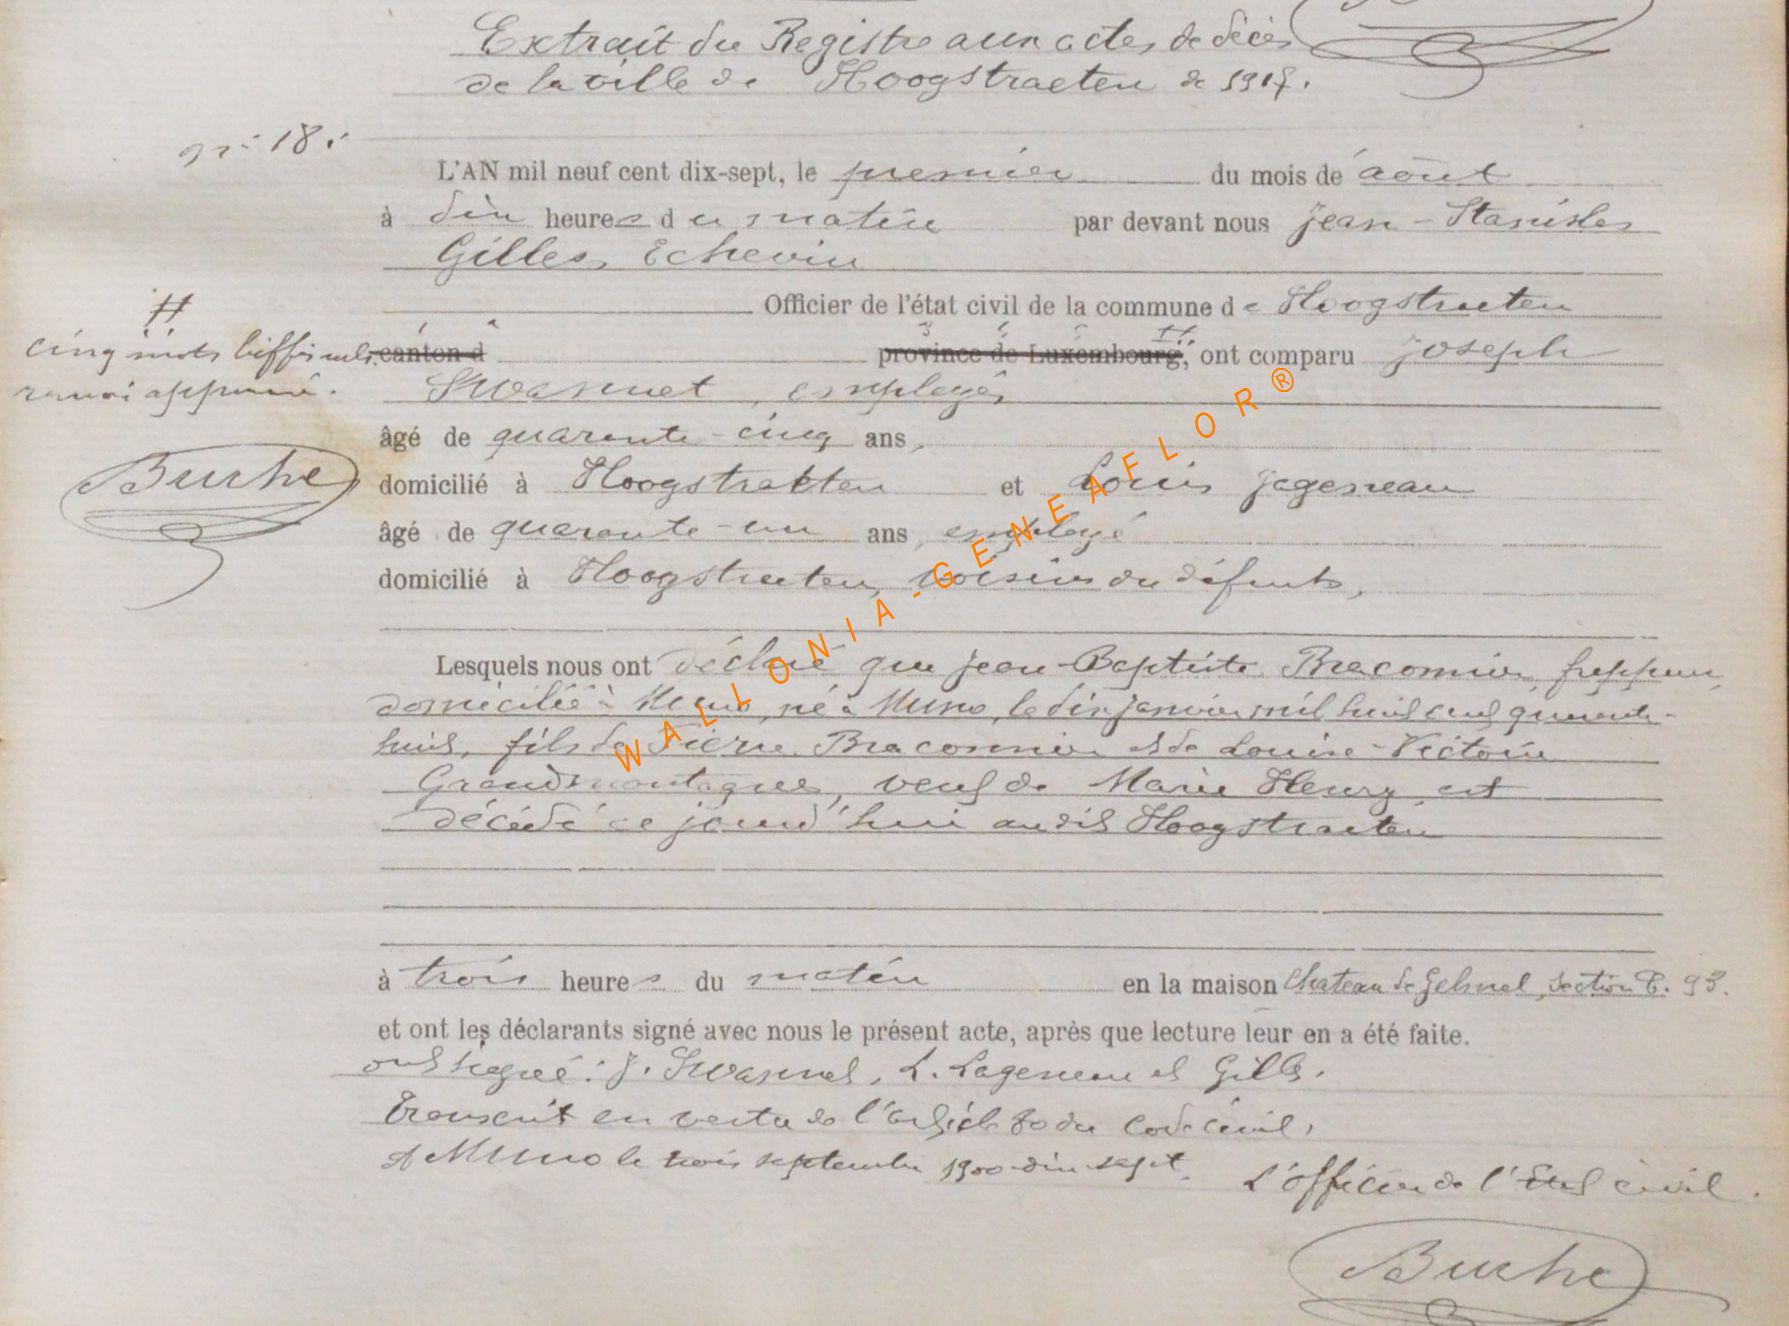 Extrait du Registre aux actes de décès
de la ville de Hoogstraeten de 1917.
n° 18.
L'AN mil neuf cent dix-sept, le premier du mois de août
à dix heures du matin par devant nous Jean-Stanislas
Gilles, Echevin
Officier de l'état civil de la commune de Hoogstraeten
#
cinq mots biffés nuls,
renvoi approuvé.
Burhe
canton d province de Luxembourg, ont comparu Joseph
Swannet, employé,
âgé de quarante-cinq ans,
domicilié à Hoogstraeten et Louis
âgé de quarante-un ans, employé
domicilié à Hoogstraeten, voisins du défunt,
Lesquels nous ont déclaré que Jean-Baptiste Braconnier, frappeur,
domicilié à Muno, né à Muno, le dix janvier mil huit cent quarante-
huit, fils de Pierre Braconnier et de Louise-Victoire
Grandmontagne, veuf de Marie Henry, est
décédé ce jourd'hui audit Hoogstraeten
à trois heures du matin en la maison Chateau de Gelmel, section B. 93.
et ont les déclarants signé avec nous le présent acte, après que lecture leur en a été faite.
ont signé: J. Swannet, L. Lageneau et Gilles.
Transcrit en vertu de l'article 80 du Code civil,
A Muno le trois septembre 1900 dix-sept.
L'officier de l'Etat civil.
Burhe
WALLONIA-GENEAFLOR®